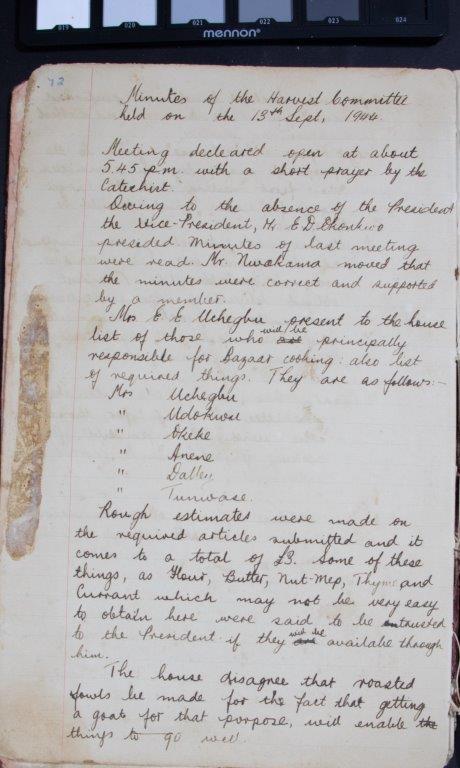 019 020 021 022 023 024
mennon®
72
Minutes of the Harvest Committee
held on the 13th Sept, 1944.
Meeting decleared open at about
5.45 p.m. with a short prayer by the
Catechist.
Owing to the absence of the President
the Vice-President, Mr E D Okonkwo
preseded. Minutes of last meeting
were read. Mr. Nwakama moved that
the minutes were correct and supported
by a member.
Mrs E. E. Uchegbu present to the house
list of those who will be are principally
responsible for Bazaar cooking: also list
of required things. They are as follows:-
Mrs Uchegbu
" Udokwu
" Okeke
" Anene
" Dalley
" Tuniwase.
Rough estimates were made on
the required articles submitted and it
comes to a total of £3. Some of these
things, as Flour, Butter, Nut-Meg, Thyme and
Currant which may not be very easy
to obtain here were said to be entrusted
to the President if they will be are available through
him.
The house disagree that roasted
fowls be made for the fact that getting
a goat for that porpose, will enable the
things to go well.